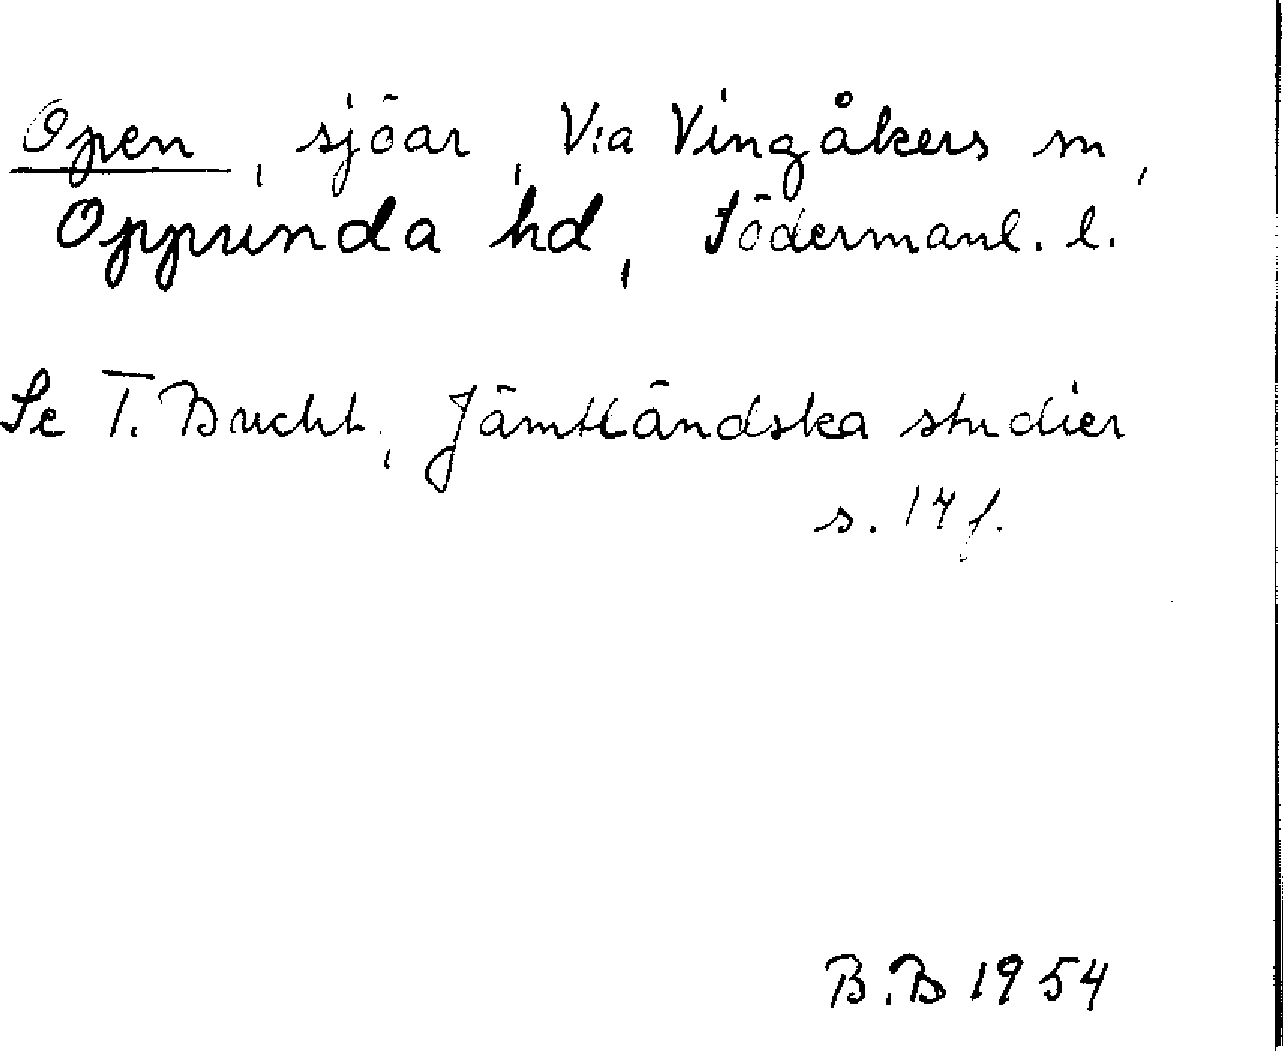 Open, sjöar, V:a Vingåkers sn,
Oppunda hd, Södermanl. l.
Se T. Bucht, Jämtländska studier
s. 14 f.
B.B 1954